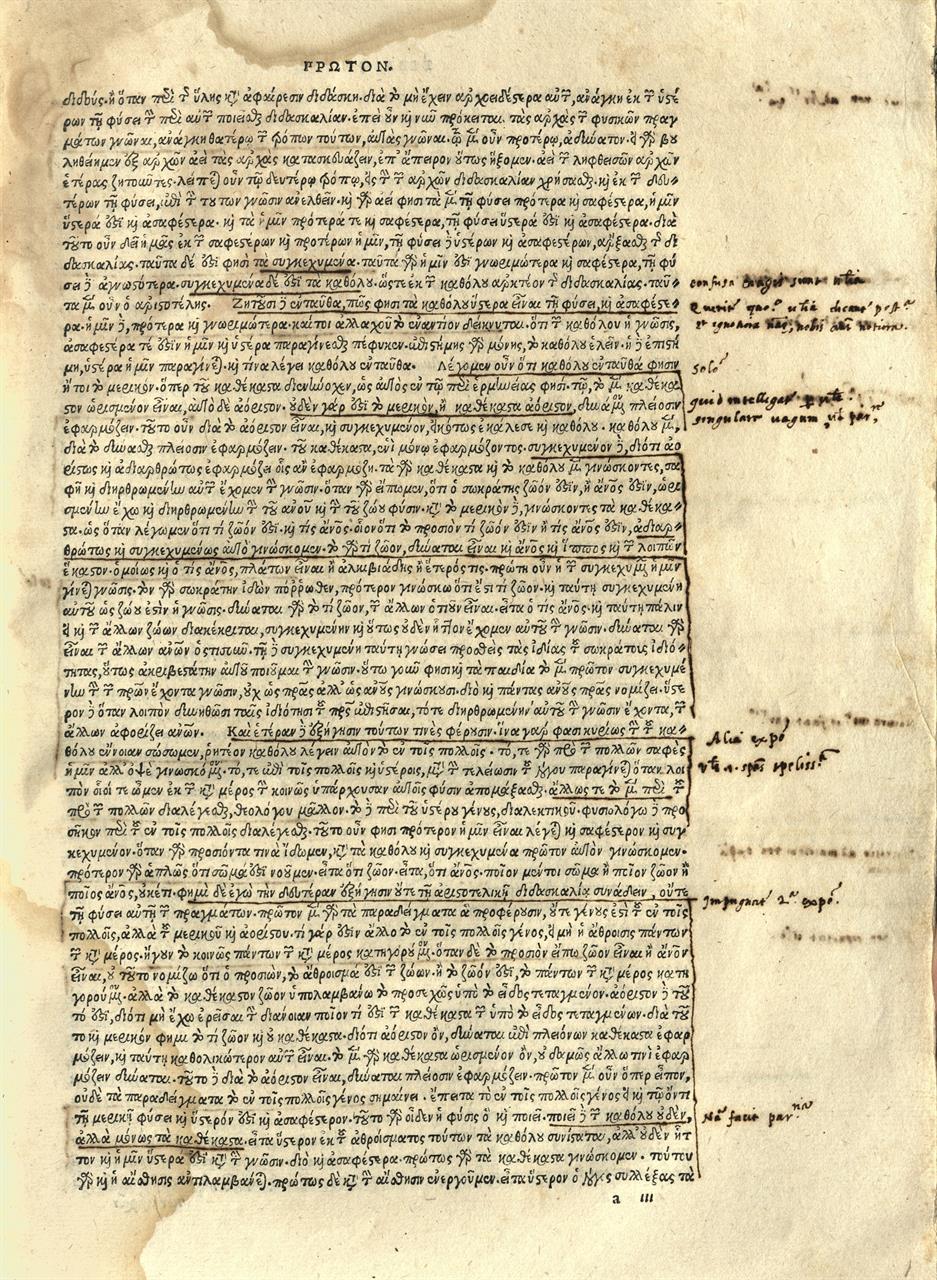 ΠΡΩΤΟΝ.
διδούς. ἢ ὅταν περὶ τῆς ὕλης κατ' ἀφαίρεσιν διδάσκη. διὰ τὸ μὴ ἔχειν ἀρχοειδέστερα αὐτῆς, ἀνάγκη ἐκ τῶν ὑστέ
ρων τῇ φύσει τὴν περὶ αὐτῆς ποιεῖσθαι διδασκαλίαν. ἐπεὶ οὖν καὶ νῦν πρόκειται τὰς ἀρχὰς τῶν φυσικῶν πραγ
μάτων γνῶναι, ἀνάγκη θατέρῳ τῶν τρόπων τούτων, αὐτὰς γνῶναι. τῷ μὲν οὖν προτέρῳ, ἀδύνατον. εἰ γὰρ βου
ληθείημεν ἐξ ἀρχῶν ἀεὶ τὰς ἀρχὰς κατασκευάζειν, ἐπ' ἄπειρον οὕτως ἥξομεν. ἀεὶ τῶν ληφθεισῶν ἀρχῶν
ἑτέρας ζητοῦντες. λείπεται οὖν τῷ δευτέρῳ τρόπῳ, εἰς τὴν τῶν ἀρχῶν διδασκαλίαν χρήσασθαι. καὶ ἐκ τῶν δευ-
τέρων τῇ φύσει, ἐπὶ τὴν τούτων γνῶσιν ἀνελθεῖν. καὶ γὰρ ἀεί φησι τὰ μὲν τῇ φύσει πρότερα καὶ σαφέστερα, ἡμῖν
ὕστερά ἐστι καὶ ἀσαφέστερα. καὶ τὰ ἡμῖν πρότερά τε καὶ σαφέστερα, τῇ φύσει ὕστερά ἐστι καὶ ἀσαφέστερα. διὰ
τοῦτο οὖν δεῖ ἡμᾶς ἐκ τῶν σαφεστέρων καὶ προτέρων ἡμῖν, τῇ φύσει δὲ ὑστέρων καὶ ἀσαφεστέρων, ἄρξασθαι τῆς δι
δασκαλίας. ταῦτα δέ ἐστί φησι τὰ συγκεχυμένα. ταῦτα γὰρ ἡμῖν ἐστι γνωριμώτερα καὶ σαφέστερα, τῇ φύ
σει δὲ ἀγνωστότερα. συγκεχυμένα δέ ἐστι τὰ καθόλου. ὥστε ἐκ τῶν καθόλου ἀρκτέον τῆς διδασκαλίας. ταῦ-
τα μὲν οὖν ὁ ἀριστοτέλης. Ζητοῦσι δὲ ἐνταῦθα, πῶς φησι τὰ καθόλου ὕστερα εἶναι τῇ φύσει, καὶ ἀσαφέστε-
ρα. ἡμῖν δὲ, πρότερα καὶ γνωριμώτερα. καίτοι ἀλλαχοῦ τὸ ἐναντίον δείκνυται. ὅτι τῶν καθόλου ἡ γνῶσις,
ἀσαφεστέρα τέ ἐστιν ἡμῖν καὶ ὑστέρα παραγίνεσθαι πέφυκεν. ἐπιστήμης γὰρ μόνης, τὸ καθόλου ἑλεῖν. ἡ δὲ ἐπιστή
μη, ὑστέρα ἡμῖν παραγίνεται. καὶ τίνα λέγει καθόλου ἐνταῦθα. Λέγομεν οὖν ὅτι καθόλου ἐνταῦθά φησιν
ἤτοι τὸ μερικόν. ὅπερ τοῦ καθέκαστα διενήνοχεν, ὡς αὐτὸς ἐν τῷ περὶ ἑρμηνείας φησὶ. τῷ, τὸ μὲν καθέκα
στον ὡρισμένον εἶναι, αὐτὸ δὲ ἀόριστον. οὐδὲν γάρ ἐστι τὸ μερικὸν, ἢ καθέκαστα ἀόριστον, δυνάμενον πλείοσιν
ἐφαρμόζειν. τοῦτο οὖν διὰ τὸ ἀόριστον εἶναι, καὶ συγκεχυμένον, εἰκότως ἐκάλεσε καὶ καθόλου. καθόλου μὲν,
διὰ τὸ δύνασθαι πλείοσιν ἐφαρμόζειν. τοῦ καθέκαστα, ἑνὶ μόνῳ ἐφαρμόζοντος. συγκεχυμένον δὲ, διότι ἀο
ρίστως καὶ ἀδιαρθρώτως ἐφαρμόζει οἷς ἂν ἐφαρμόζη. τὰ γὰρ καθέκαστα καὶ τὸ καθόλου μὲν γινώσκοντες, σα
φῆ καὶ διηρθρωμένην αὐτῶν ἔχομεν τὴν γνῶσιν. ὅταν γὰρ εἴπωμεν, ὅτι ὁ σωκράτης ζῶόν ἐστιν, ἢ ἄνθρωπός ἐστιν, ὡρι
σμένην ἔχω καὶ διηρθρωμένην τὴν τοῦ ἀνθρώπου καὶ τὴν τοῦ ζώου φύσιν. κατὰ τὸ μερικὸν δὲ, γινώσκοντες τὰ καθέκα-
στα. ὡς ὅταν λέγωμεν ὅτι τὶ ζῶόν ἐστι. καὶ τὶς ἄνθρωπος. οἷον ὅτι τὸ προσιὸν τὶ ζῶόν ἐστιν ἢ τὶς ἄνθρωπός ἐστιν, ἀδιαρ-
θρώτως καὶ συγκεχυμένως αὐτὸ γινώσκομεν. τὸ γὰρ τὶ ζῶον, δύναται εἶναι καὶ ἄνθρωπος καὶ ἵππος καὶ τῶν λοιπῶν
ἕκαστον. ὁμοίως καὶ ὁ τὶς ἄνθρωπος, πλάτων εἶναι ἢ ἀλκιβιάδης ἢ ἕτερός τις. πρώτη οὖν ἡ τῶν συγκεχυμένων ἡμῖν
γίνεται γνῶσις. τὸν γὰρ σωκράτην ἰδὼν πόρρωθεν, πρότερον γινώσκω ὅτι ἐστὶ τὶ ζῶον. καὶ ταύτῃ συγκεχυμένη
αὐτοῦ ὡς ζώου ἐστὶν ἡ γνῶσις. δύναται γὰρ τὸ τὶ ζῶον, τῶν ἄλλων ὁτιοῦν εἶναι. εἶτα ὁ τὶς ἄνθρωπος. καὶ ταύτῃ πάλιν
εἰ καὶ τῶν ἄλλων ζώων διακέκριται, συγκεχυμένην καὶ οὕτως οὐδὲν ἧττον ἔχομεν αὐτοῦ τὴν γνῶσιν. δύναται γὰρ
εἶναι τῶν ἄλλων ἀνθρώπων ὁστισοῦν. τῇ δὲ συγκεχυμένη ταύτῃ γνώσει προσθεὶς τὰς ἰδίας τοῦ σωκράτους ἰδιό-
τητας, οὕτως ἀκριβεστάτην αὐτοῦ ποιοῦμαι τὴν γνῶσιν. οὕτω γοῦν φησι καὶ τὰ παιδία τὸ μὲν πρῶτον συγκεχυμέ
νην τὴν τῶν πατέρων ἔχοντα γνῶσιν, οὐχ ὡς πατέρας ἀλλ' ὡς ἀνθρώπους γινώσκουσι. διὸ καὶ πάντας ἀνθρώπους πατέρας νομίζει. ὕστε
ρον δὲ ὅταν λοιπὸν δυνηθῶσι ταῖς ἰδιότησι τῶν πατέρων ἐπιστῆσαι, τότε διηρθρωμένην αὐτοῦ τὴν γνῶσιν ἔχοντα, τῶν
ἄλλων ἀφορίζει ἀνθρώπων. Καὶ ἑτέραν δὲ ἐξήγησιν τούτων τινὲς φέρουσιν. ἵνα γάρ φασι κυρίως τὴν τοῦ κα-
θόλου ἔννοιαν σώσωμεν, ῥητέον καθόλου λέγειν αὐτὸν τὸ ἐν τοῖς πολλοῖς. τό, τε γὰρ πρὸ τῶν πολλῶν σαφὲς
ἡμῖν ἀλλ' ὀψὲ γινωσκόμενον. τό, τε ἐπὶ τοῖς πολλοῖς καὶ ὑστέροις, μετὰ τὴν τελείωσιν τοῦ λόγου παραγίνεται ὅταν λοι
πὸν οἷοί τε ὦμεν ἐκ τῶν κατὰ μέρος τὴν κοινῶς ὑπάρχουσαν αὐτοῖς φύσιν ἀπομάξασθαι. ἄλλως τε τὸ μὲν περὶ τῶν
πρὸ τῶν πολλῶν διαλέγεσθαι, θεολόγου μᾶλλον. τὸ δὲ περὶ τοῦ ὑστέρου γένους, διαλεκτικοῦ. φυσιολόγῳ δὲ προ
σῆκον περὶ τῶν ἐν τοῖς πολλοῖς διαλέγεσθαι. τοῦτο οὖν φησι πρότερον ἡμῖν εἶναι λέγεται καὶ σαφέστερον καὶ συγ
κεχυμένον. ὅταν γὰρ προσιόντα τινὰ ἴδωμεν, κατὰ τὰ καθόλου καὶ συγκεχυμένα πρῶτον αὐτὸν γινώσκομεν.
πρότερον γὰρ ἁπλῶς ὅτι σῶμά ἐστι νοοῦμεν. εἶτα ὅτι ζῶον. εἶτα, ὅτι ἄνθρωπος. ποῖον μέντοι σῶμα ἢ ποῖον ζῶον ἢ
ποῖος ἄνθρωπος, οὐκέτι. φημὶ δὲ ἐγὼ τὴν δευτέραν ἐξήγησιν οὔτε τῇ ἀριστοτελικῇ διδασκαλίᾳ συνάδειν, οὔτε
τῇ φύσει αὐτῇ τῶν πραγμάτων. πρῶτον μὲν γὰρ τὰ παραδείγματα ἃ προφέρουσιν, οὔτε γένους ἐστὶ τοῦ ἐν τοῖς
πολλοῖς, ἀλλὰ τοῦ μερικοῦ καὶ ἀορίστου. τί γάρ ἐστιν ἄλλο τὸ ἐν τοῖς πολλοῖς γένος, εἰ μὴ ἡ ἄθροισις πάντων
τῶν κατὰ μέρος. ἤγουν τὸ κοινῶς πάντων τῶν κατὰ μέρος κατηγορούμενον. ὅταν δὲ τὸ προσιὸν εἴπω ζῶον εἶναι ἢ ἄνθρωπον
εἶναι, οὐ τοῦτο νομίζω ὅτι ὁ προσιὼν, τὸ ἄθροισμά ἐστι τῶν ζώων. ἢ τὸ ζῶόν ἐστι, τὸ πάντων τῶν κατὰ μέρος κατη
γορούμενον. ἀλλὰ τὸ καθέκαστον ζῶον ὑπολαμβάνω τὸ προσεχῶς ὑπὸ τὸ εἶδος τεταγμένον. ἀόριστον δὲ τοῦ
το ἐστι, διότι μὴ ἔχω ἐρεῖσαι τὴν διάνοιαν ποῖον τί ἐστι τῶν καθέκαστα τῶν ὑπὸ τὸ εἶδος τεταγμένων. διὰ τοῦ
το καὶ μερικόν φημι τὸ τὶ ζῶον καὶ οὐ καθέκαστα. διότι ἀόριστον ὂν, δύναται ἐπὶ πλειόνων καθέκαστα ἐφαρ
μόζειν, καὶ ταύτῃ καθολικώτερον αὐτῶν εἶναι. τὸ μὲν γὰρ καθέκαστα ὡρισμένον ὂν, οὐδαμῶς ἄλλῳ τινὶ ἐφαρ
μόζειν δύναται. τοῦτο δὲ διὰ τὸ ἀόριστον εἶναι, δύναται πλείοσιν ἐφαρμόζειν. πρῶτον μὲν οὖν ὅπερ εἶπον,
οὐδὲ τὰ παραδείγματα τὸ ἐν τοῖς πολλοῖς γένος σημαίνει. ἔπειτα τὸ ἐν τοῖς πολλοῖς γένος εἰ καὶ τῷ ὄντι
τῇ μερικῇ φύσει καὶ ὕστερόν ἐστι καὶ ἀσαφέστερον. τοῦτο γὰρ οἶδεν ἡ φύσις ὃ καὶ ποιεῖ. ποιεῖ δὲ τῶν καθόλου οὐδὲν,
ἀλλὰ μόνως τὰ καθέκαστα. εἶτα ὕστερον ἐκ τοῦ ἀθροίσματος τούτων τὰ καθόλου συνίσταται, ἀλλ' οὐδὲν ἧτ
τον καὶ ἡμῖν ὕστερά ἐστι κατὰ τὴν γνῶσιν. διὸ καὶ ἀσαφέστερα. πρώτως γὰρ τὰ καθέκαστα γινώσκομεν. τούτου
γὰρ καὶ ἡ αἴσθησις ἀντιλαμβάνεται. πρώτως δὲ κατὰ τὴν αἴσθησιν ἐνεργοῦμεν. εἶτα ὕστερον ὁ λόγος συλλέξας τὰ
a iii
confusa magis sunt vlia
Querit quo vlia dicant post
et ignotiora nãe, nobis aut notiora.
Solo
quid intelligat p vle
singulare vagum vl par
Alia expo
Impugnat 2ᵃ expo
Nᵃ facit par